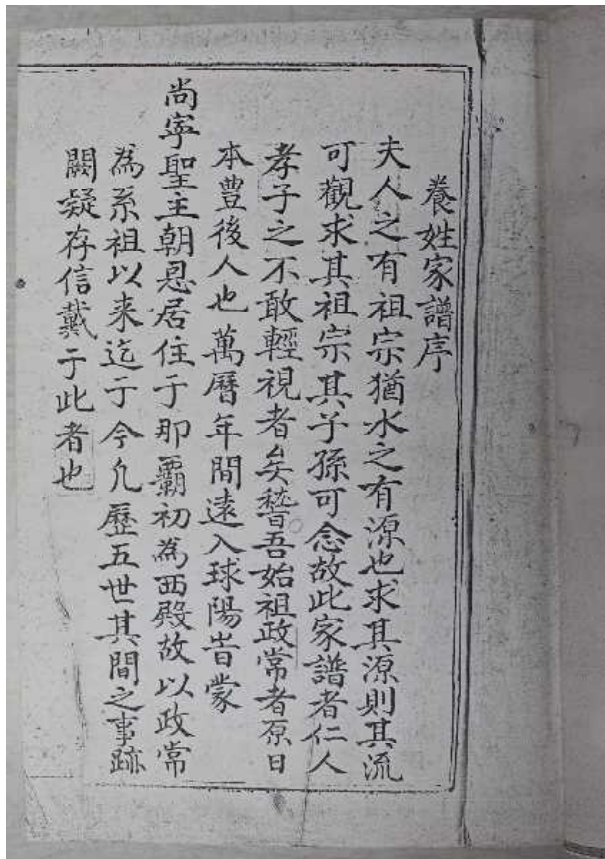 養姓家譜序
夫人之有祖宗猶水之有源也求其源則其流
可觀求其祖宗其子孫可念故此家譜者仁人
孝子之不敢輕視者矣嵆吾始祖政常者原日
本豊後人也萬曆年間遠入球陽旹蒙
尚寧聖王朝恩居住于那覇初為西殿故以政常
為系祖以来迄于今凢歷五世其間之事跡
闕疑存信戴于此者也